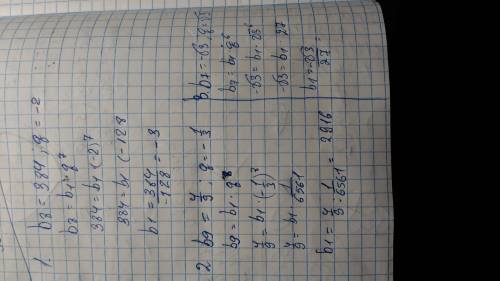 1. b8 = 384; q = -2
b8 = b1 · q⁷
384 = b1 · (-2)⁷
384 = b1 · (-128
b1 = 384/-128 = -3
2 b9 = 4/9; q = -1/3
b9 = b1 · q⁸
4/9 = b1 · (-1/3)⁸
4/9 = b1 · 1/6561
b1 = 4/9 : 1/6561 = 2916
3. b7 = -√3, q = √3
b7 = b1 · q⁶
-√3 = b1 · √3⁶
-√3 = b1 · 27
b1 = -√3/27 =